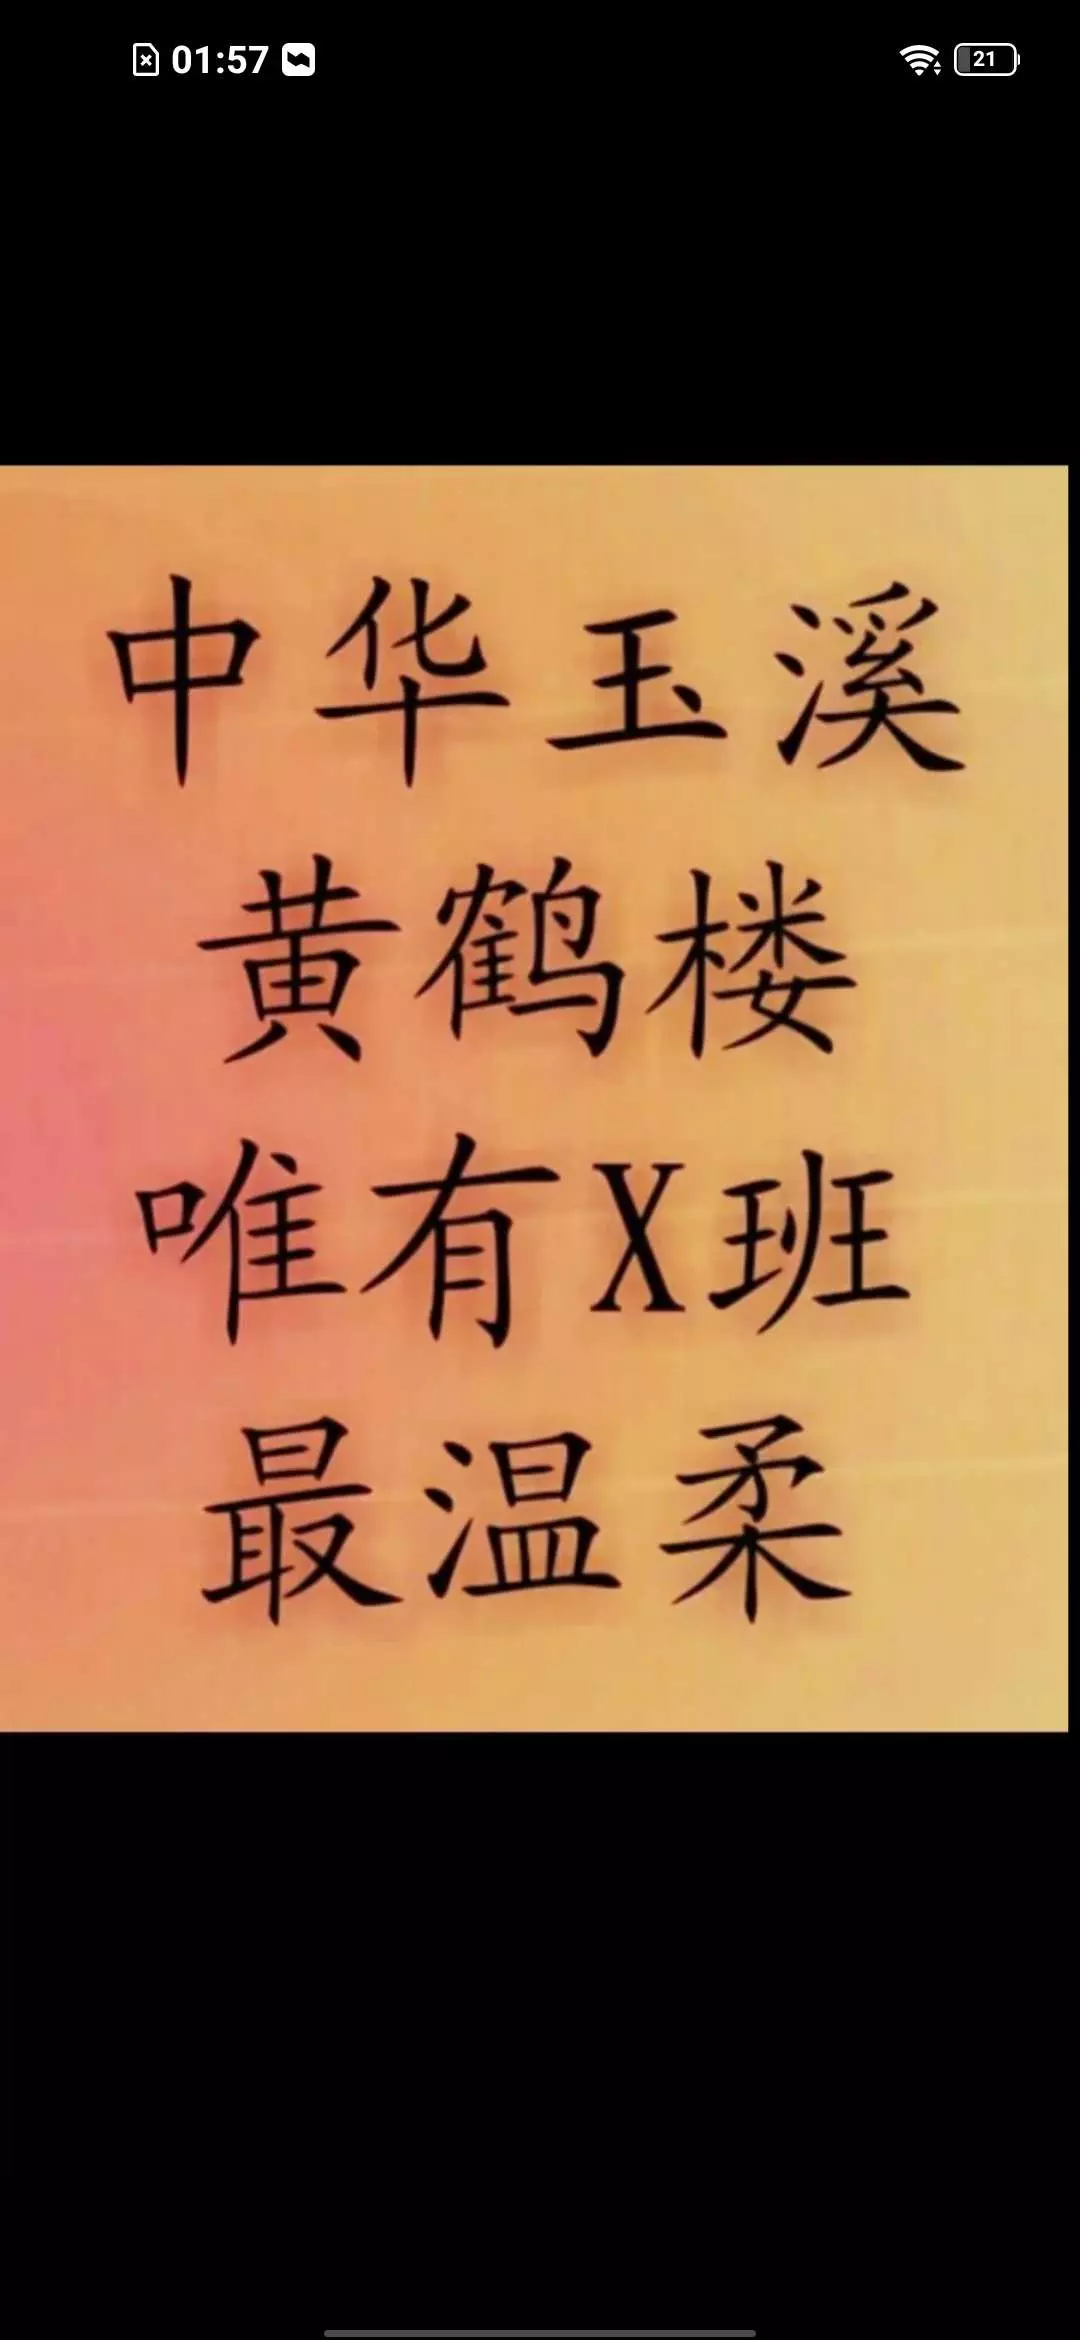 01:57
21
中华玉溪
黄鹤楼
唯有X班
最温柔